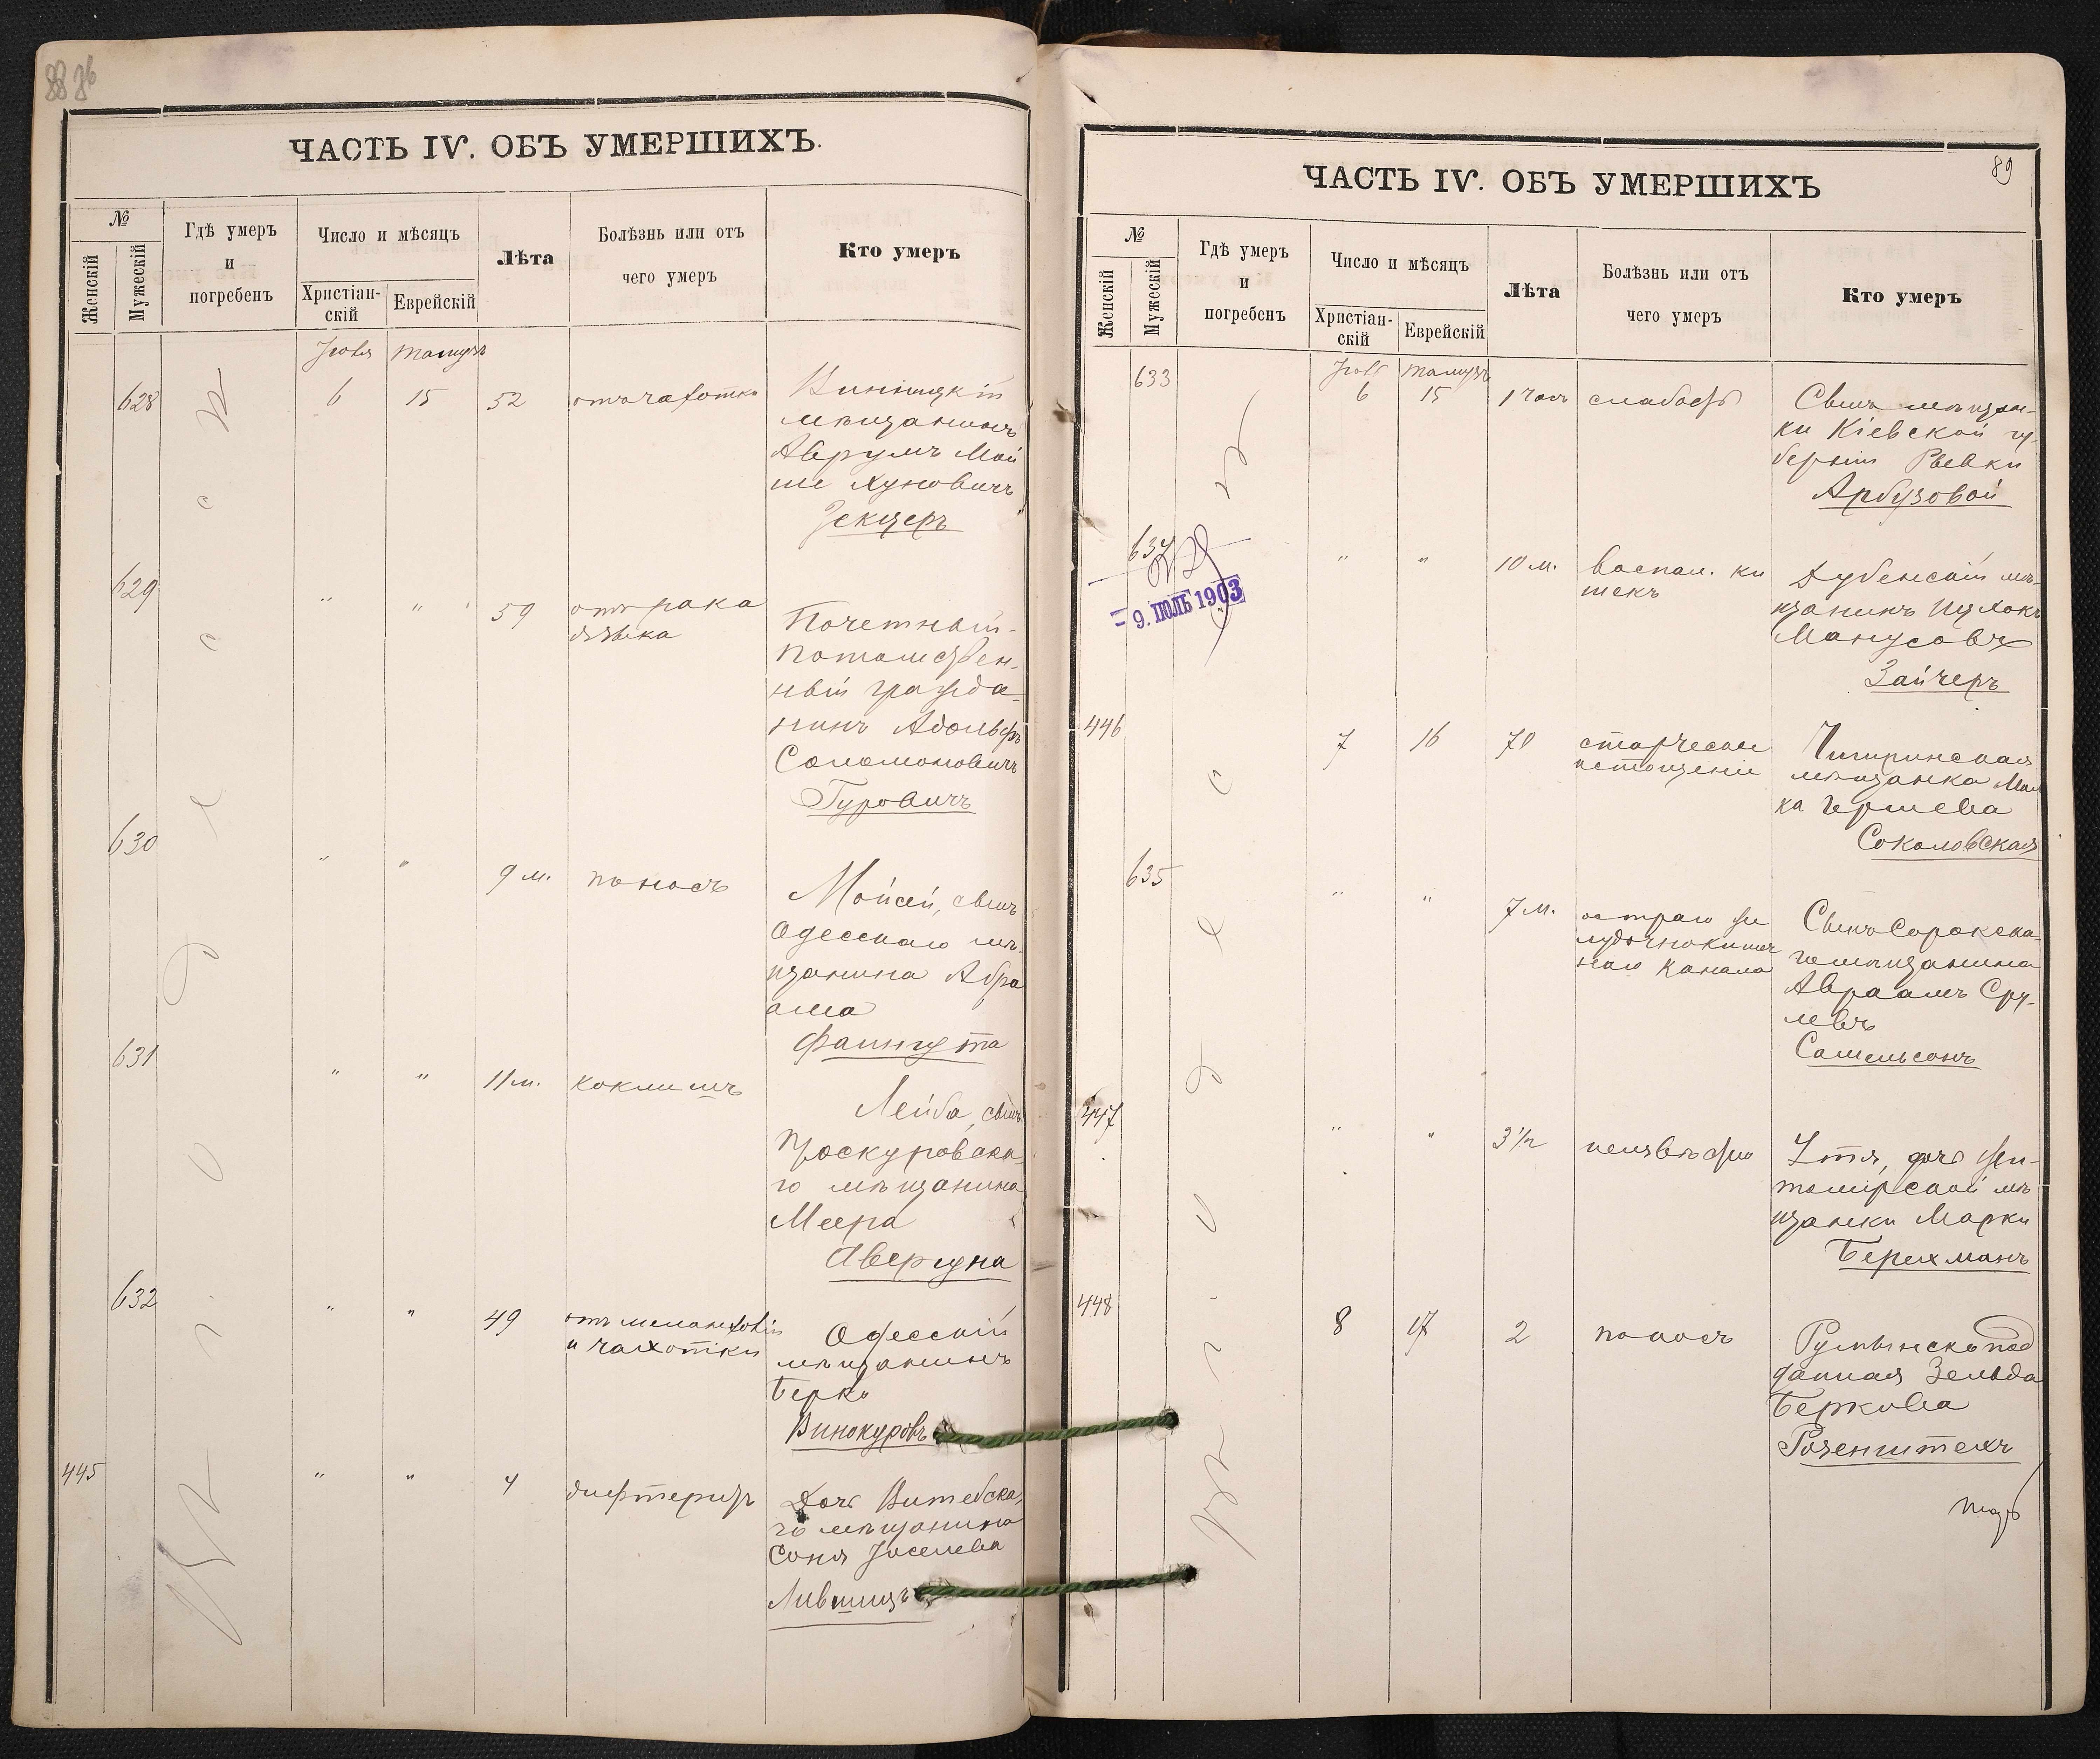 88 об
ЧАСТЬ IV. ОБЪ УМЕРШИХЪ.
№
Женскій
Мужескій
Гдѣ умеръ
и
погребенъ
Число и мѣсяцъ
Христіан-
скій
Еврейскій
Лѣта
Болѣзнь или отъ
чего умеръ
Кто умеръ
Въ г. Одессѣ
Іюля Тамузъ
628 6 15 52 отъ чахотки
Винницкій
мѣщанинъ
Аврумъ Мой
ше Хуновичъ
Зекцеръ
629 " " 59 отъ рака
языка
Почетный
потомствен-
ный гражда-
нинъ Адольфъ
Соломоновичъ
Гуровичъ
630 " " 9 м. поносъ
Мойсей, сынъ
Одесскаго мѣ-
щанина Абра
ама
Файнгута
631 " " 11 м. коклюшъ
Лейба, сынъ
Проскуровска-
го мѣщанина
Меера
Авергуна
632 " " 49 отъ меланхоліи
и чахотки
Одесскій
мѣщанинъ
Берко
Винокуровъ
445 " " 4 дифтеритъ
Дочь Витебска-
го мѣщанина
Соня Іоселева
Лившицъ
89
ЧАСТЬ IV. ОБЪ УМЕРШИХЪ
№
Женскій
Мужескій
Гдѣ умеръ
и
погребенъ
Число и мѣсяцъ
Христіан-
скій
Еврейскій
Лѣта
Болѣзнь или отъ
чего умеръ
Кто умеръ
Въ г. Одессѣ
Іюля Тамузъ
633 6 15 1 часъ слабость
Сынъ мѣщан-
ки Кіевской гу-
берніи Рывки
Арбузовой
634 " " 10 м. воспал. ки
шекъ
Дубенскій мѣ-
щанинъ Ицхокъ
Манусовъ
Зайчеръ
- 9. ІЮЛЬ 1903
446 7 16 70 старческое
истощеніе
Чигиринская
мѣщанка Мал
ка Гершева
Соколовская
635 " " 7 м. остраго же
лудочнокишеч
наго канала
Сынъ Сорокска-
го мѣщанина
Авраамъ Сру-
левъ
Самельсонъ
447 " " 3 1/2 неизвѣстно
Этя, дочь Жи-
томирской мѣ
щанки Марки
Берехманъ
448 8 17 2 поносъ
Румынско под
данная Зельда
Беркова
Розенштехъ